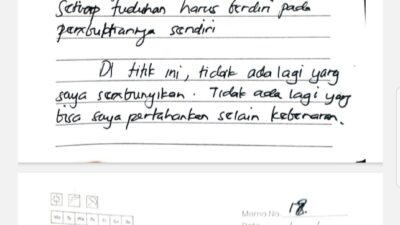 Setiap tuduhan harus berdiri pada
pembuktiannya sendiri
Di titik ini, tidak ada lagi yang
saya sembunyikan. Tidak ada lagi yang
bisa saya pertahankan selain kebenaran.
Memo No. 18.
Date
Mo Tu We Th Fr Sa Su